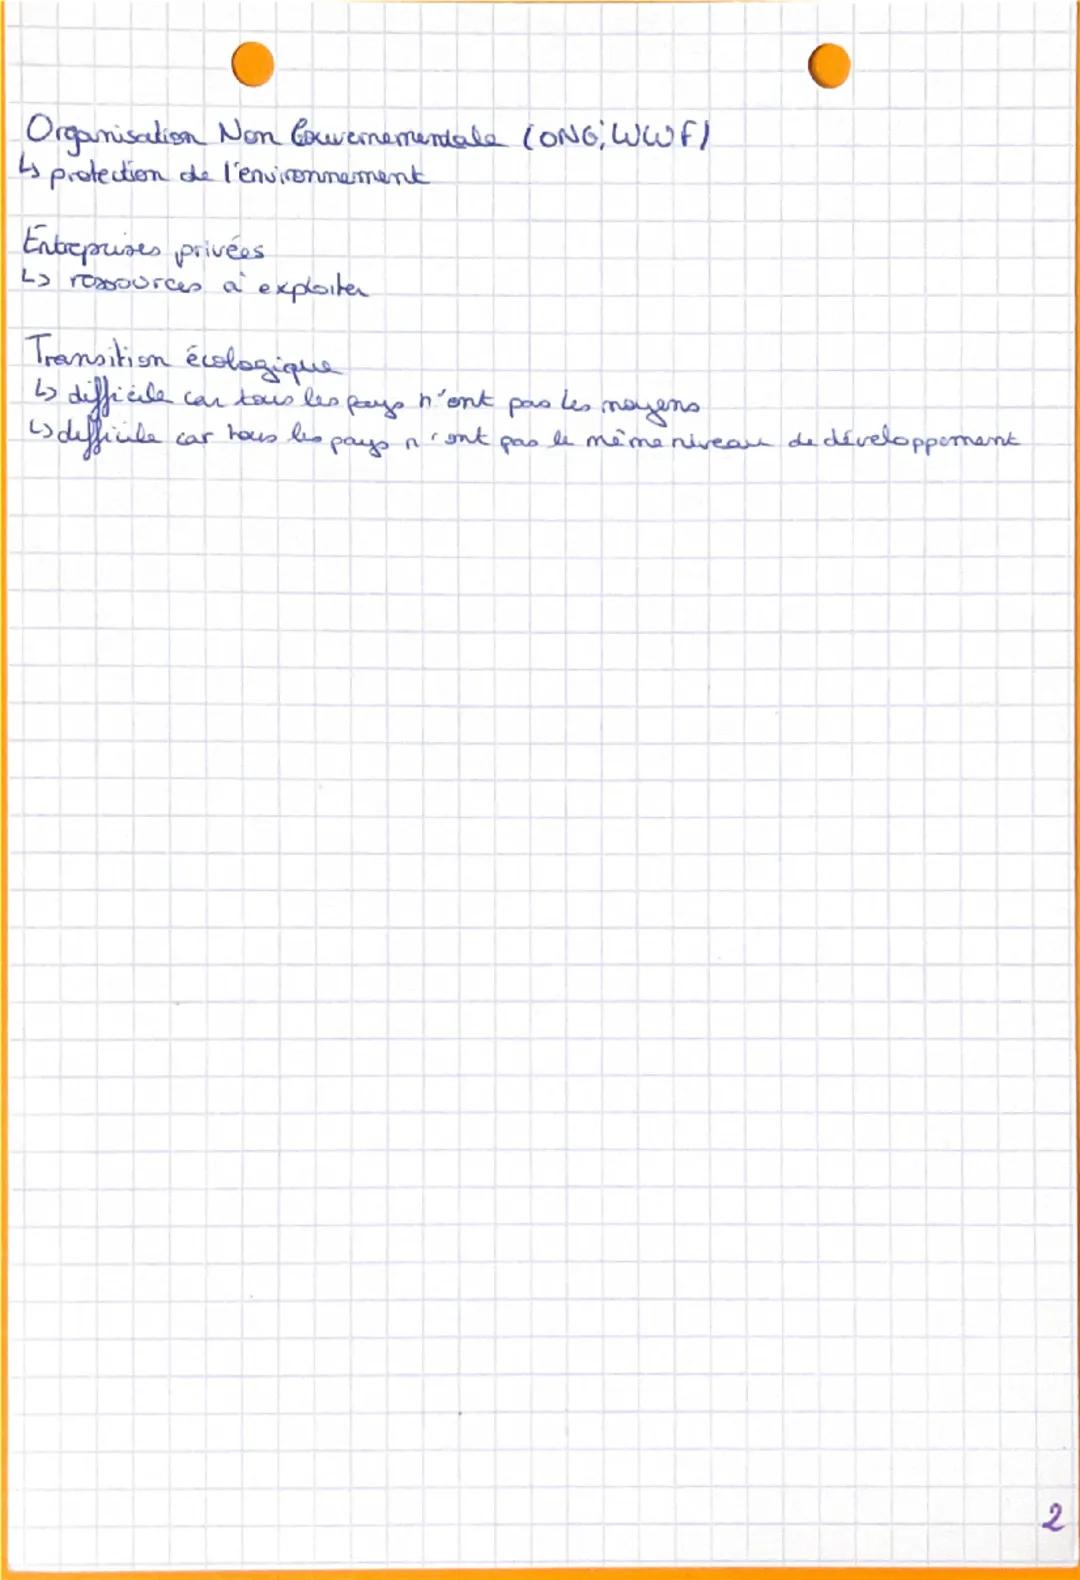 Organisation Non Gouvernementale (ONG; WWF)
↳ protection de l'environnement
Entreprises privées
↳ ressources à exploiter
Transition écologique
↳ difficile car tous les pays n'ont pas les moyens
↳ difficile car tous les pays n'ont pas le même niveau de développement
2